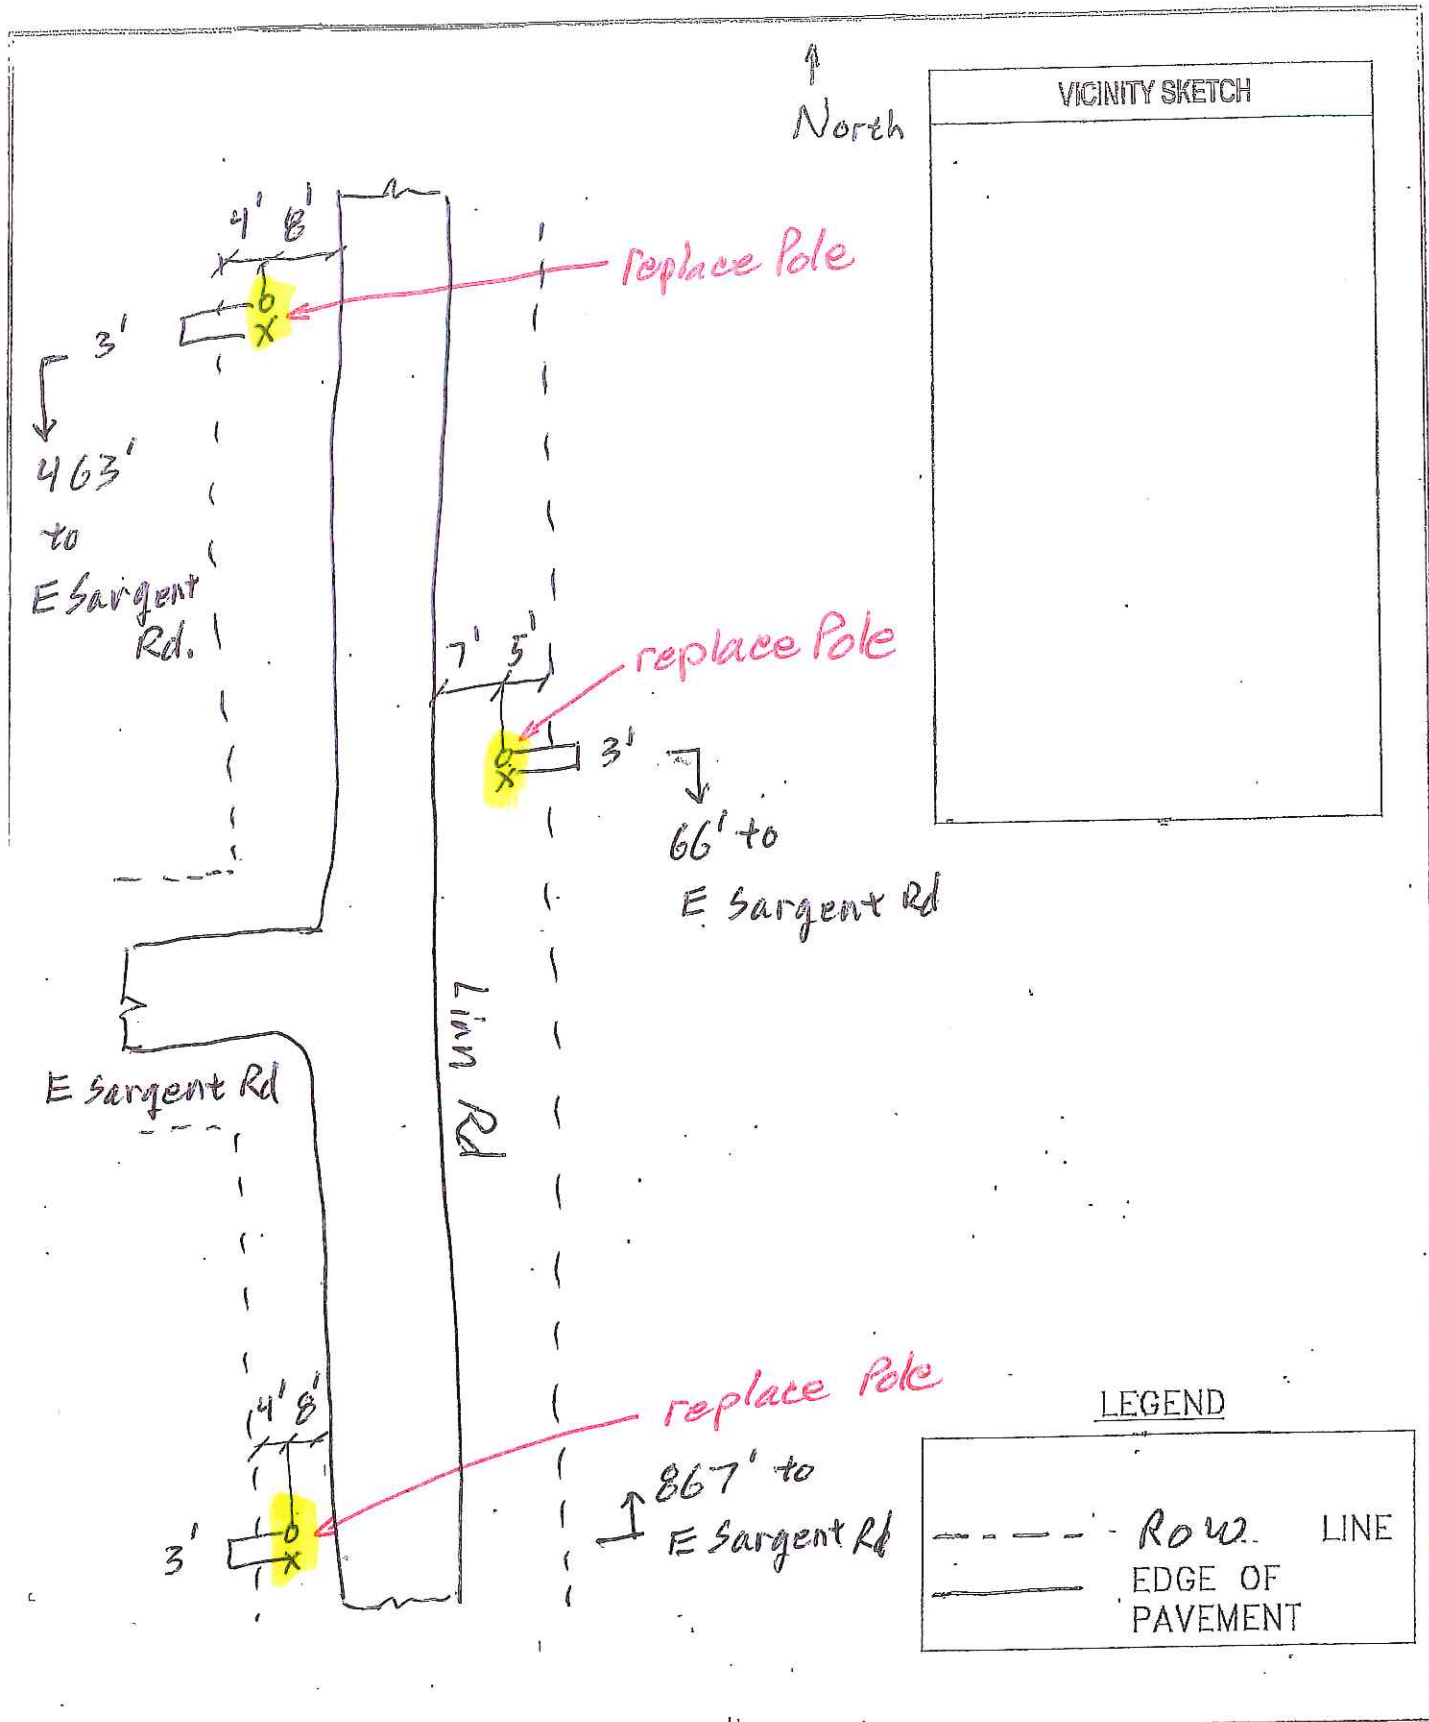 North
VICINITY SKETCH
4' 8'
replace Pole
3'
463'
to
E Sargent
Rd.
7' 5'
replace Pole
3'
66' to
E Sargent Rd
E Sargent Rd
Linn Rd
4' 8'
replace Pole
867' to
E Sargent Rd
3'
LEGEND
ROW. LINE
EDGE OF
PAVEMENT